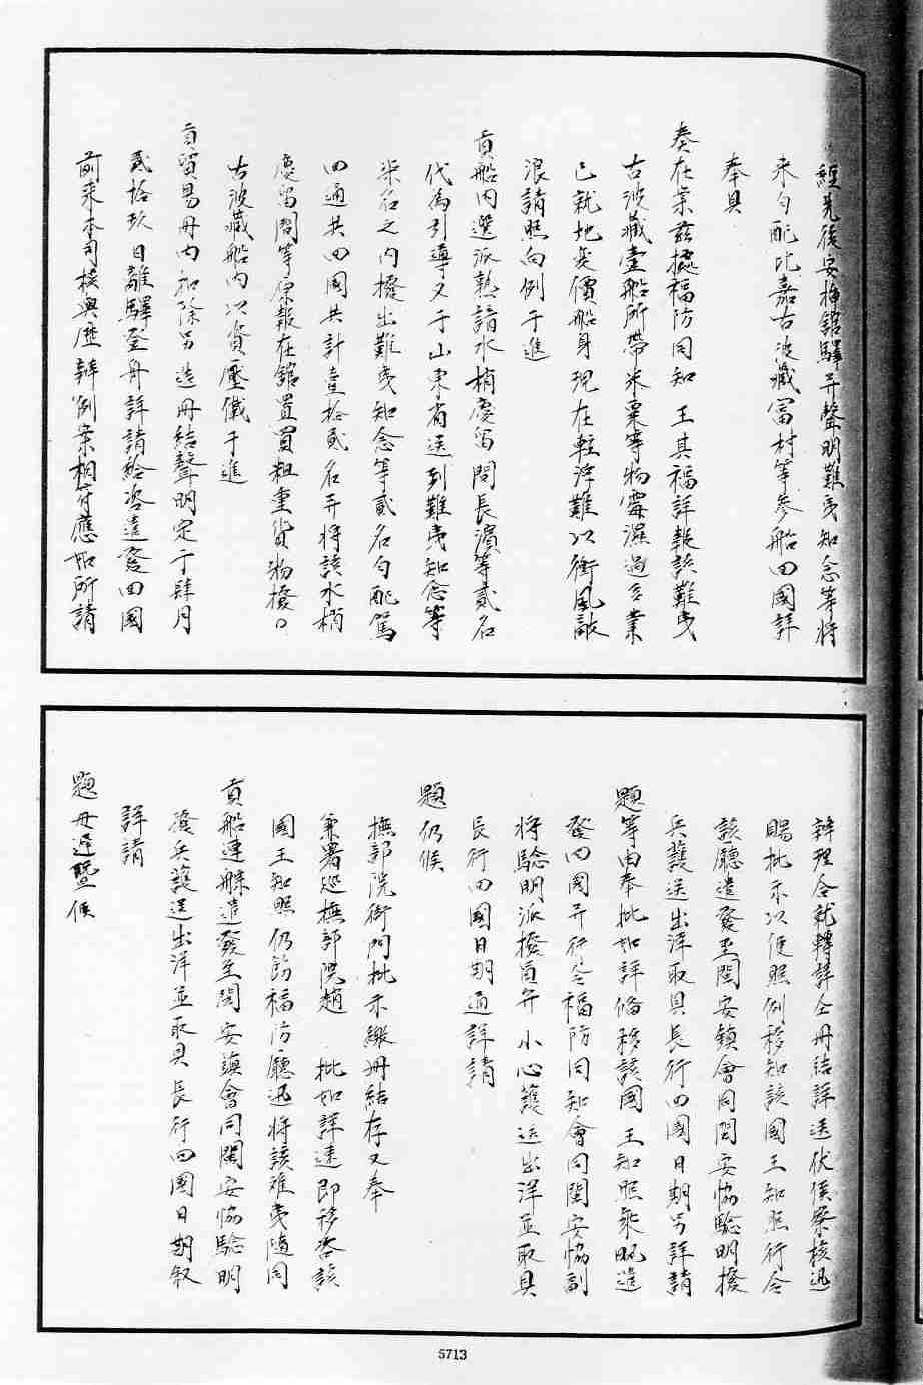 經先後安插館驛并聲明難夷知念等將
來勻配比嘉古波藏富村等參船回國詳
奉具
奏在案茲據福防同知王其福詳報該難夷
古波藏壹船所帶米粟等物霉濕過多業
已就地変價船身現在輕浮難以衝風敵
浪請照向例于進
貢船内選派熟諳水梢慶留間長濱等貳名
代為引導又于山東省送到難夷知念等
柒名之内撥出難夷知念等貳名勻配駕
回通共四國共計壹拾貳名并將該水梢
慶留間等原報在館置買粗重貨物撥。
古波藏船内以資壓儎于進
貢貿易册内扣除另造册結聲明定于肆月
貳拾玖日離驛登舟詳請給咨遣發回國
前來本司核與歷辦例案相符應如所請
辦理合就轉詳仝册結詳送伏候察核迅
賜批示以便照例移知該國王知照行令
該廳遣發至閩安鎮會同閩安協驗明撥
兵護送出洋取具長行回國日期另詳請
題等由奉批如詳俻移該國王知照飭遣
發回國并行令福防同知會同閩安協副
將驗明派撥員弁小心護送出洋並取具
長行回國日期通詳請
題仍候
撫部院衙門批示繳册結存又奉
兼署廵撫部院趙 批如詳速即移咨該
國王知照仍飭福防廳迅將該难夷随同
貢船連䑸遣發至閩安鎮會同閩安協驗明
撥兵護送出洋並取具長行回國日期敘
詳請
題毋遲暨候
5713